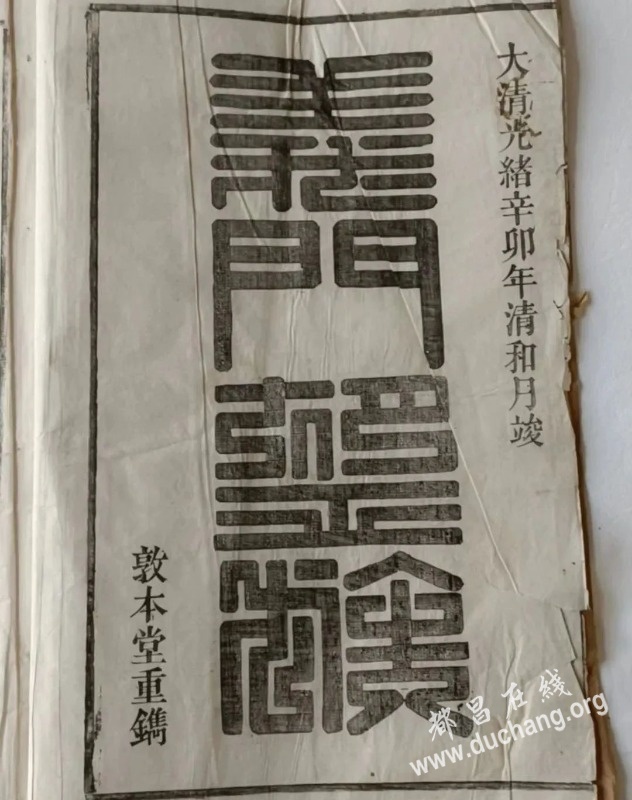 大清光緒辛卯年清和月竣
義門
敦本堂重鐫
都昌在綫
www.duchang.org